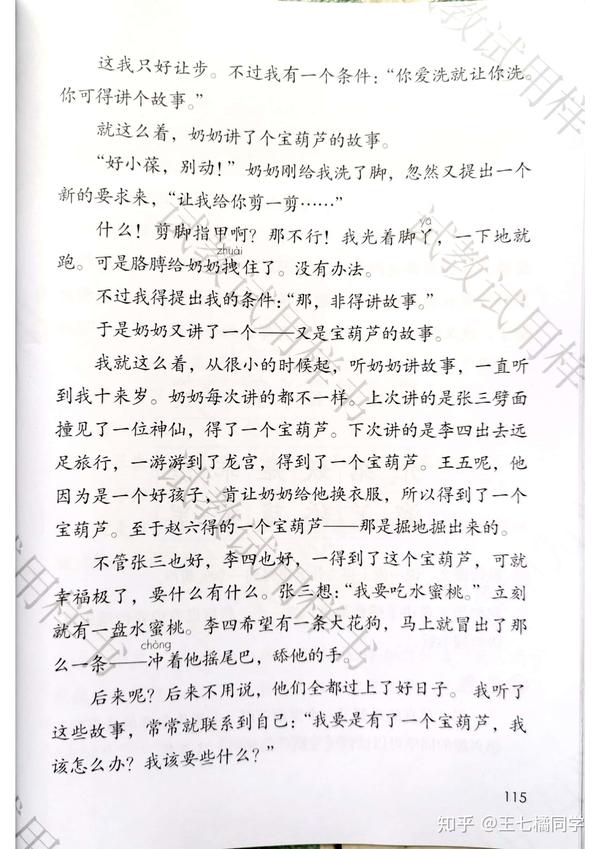 这我只好让步。不过我有一个条件：“你爱洗就让你洗。
你可得讲个故事。”
就这么着，奶奶讲了个宝葫芦的故事。
“好小葆，别动！”奶奶刚给我洗了脚，忽然又提出一个
新的要求来，“让我给你剪一剪……”
yā
什么！剪脚指甲啊？那不行！我光着脚丫，一下地就
zhuài
跑。可是胳膊给奶奶拽住了。没有办法。
不过我得提出我的条件：“那，非得讲故事。”
于是奶奶又讲了一个——又是宝葫芦的故事。
我就这么着，从很小的时候起，听奶奶讲故事，一直听
到我十来岁。奶奶每次讲的都不一样。上次讲的是张三劈面
撞见了一位神仙，得了一个宝葫芦。下次讲的是李四出去远
足旅行，一游游到了龙宫，得到了一个宝葫芦。王五呢，他
因为是一个好孩子，肯让奶奶给他换衣服，所以得到了一个
宝葫芦。至于赵六得的一个宝葫芦——那是掘地掘出来的。
不管张三也好，李四也好，一得到了这个宝葫芦，可就
幸福极了，要什么有什么。张三想：“我要吃水蜜桃。”立刻
就有一盘水蜜桃。李四希望有一条大花狗，马上就冒出了那
chòng
么一条——冲着他摇尾巴，舔他的手。
后来呢？后来不用说，他们全都过上了好日子。我听了
这些故事，常常就联系到自己：“我要是有了一个宝葫芦，我
该怎么办？我该要些什么？”
115
知乎 @王七橘同学
试教试用样书
试教试用样书
试教试用样
试教试用样书
试用样书